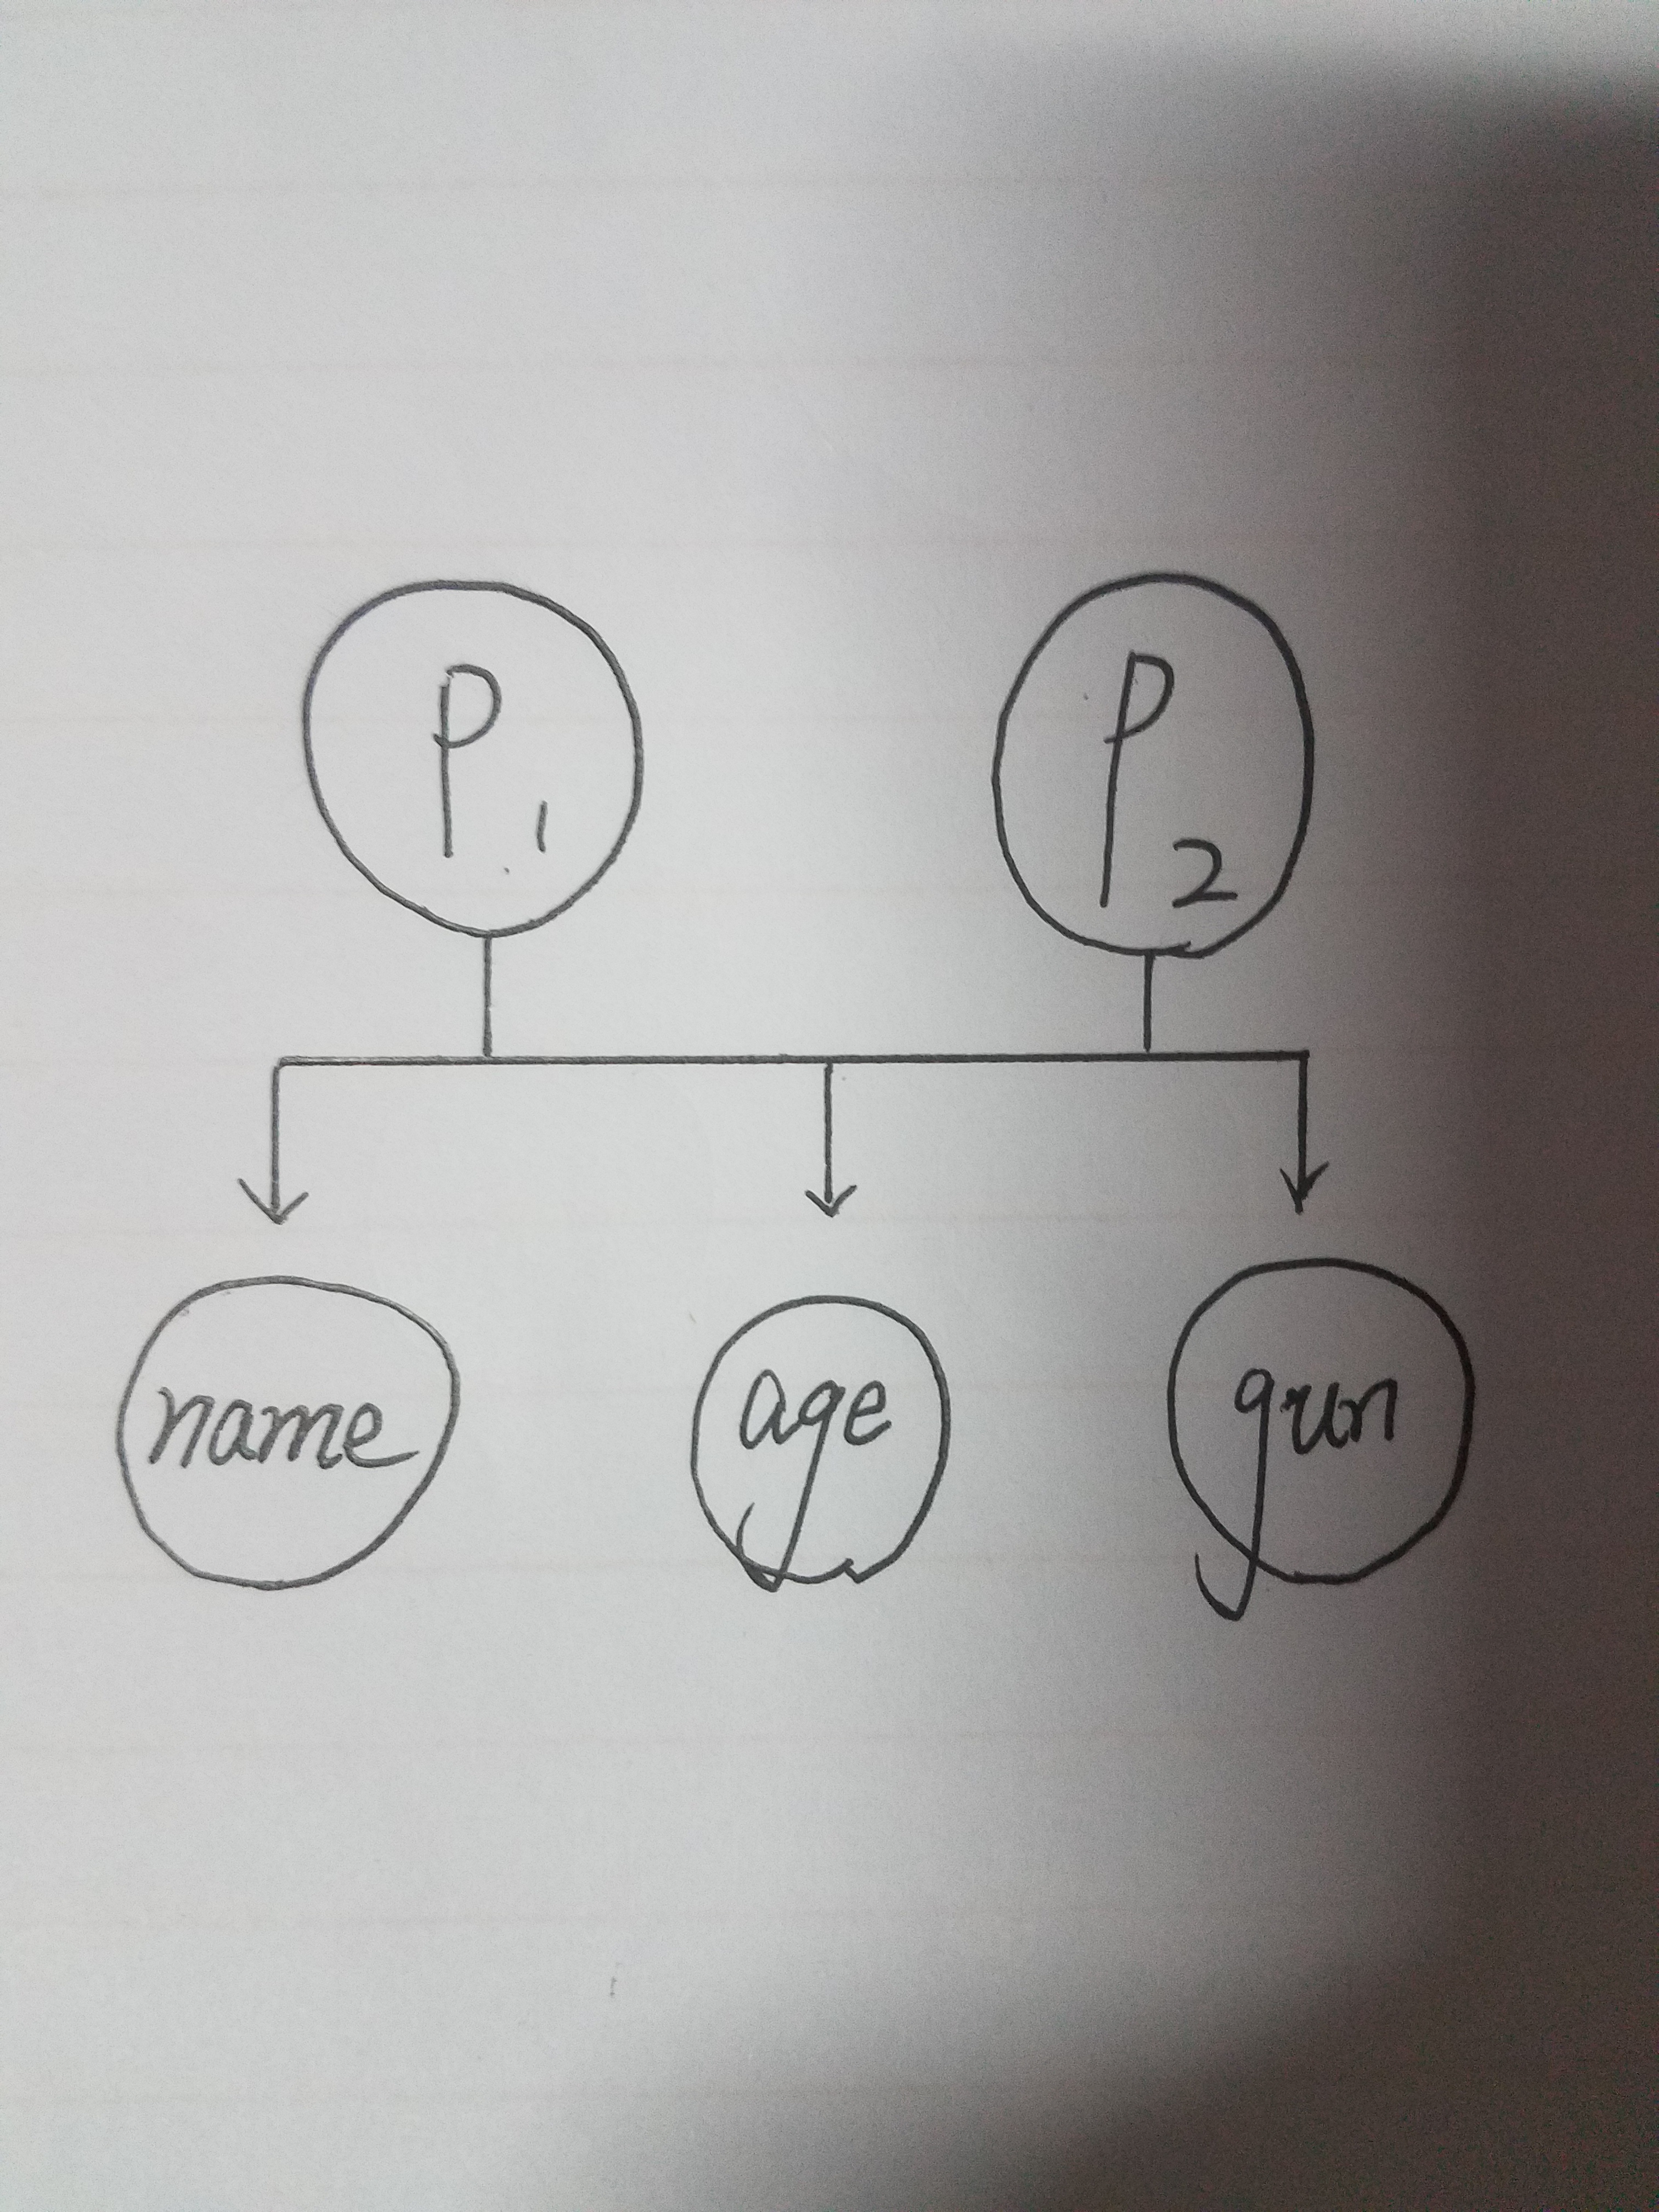 P1
P2
name
age
gun